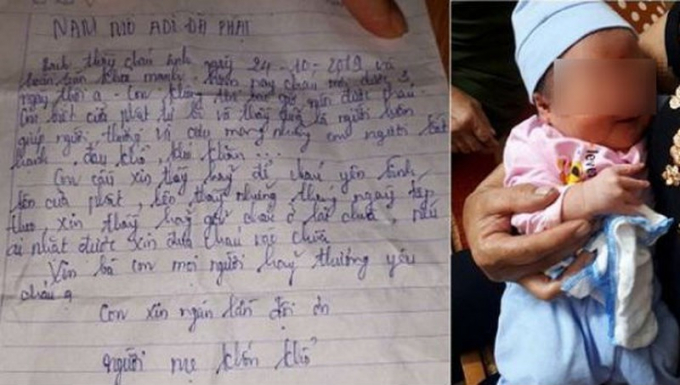 NAM MÔ ADI ĐÀ PHẬT
thầy cháu sinh ngày 24-10-2019 và
hoàn toàn khỏe mạnh. Hôm nay cháu mới được 3
ngày thôi ạ. Con không thể
Con biết cửa phật từ bi và thầy là người luôn
giúp người, thương và cưu mang những con người bất
hạnh, đau khổ, khó khăn...
Con cầu xin thầy hãy để cháu yên bình
bên cửa phật, bên thầy những tháng ngày tiếp
theo, xin thầy hãy giữ cháu ở lại chùa, nếu
ai nhặt được xin đưa cháu vào chùa
Xin bà con mọi người hãy thương yêu
cháu ạ
Con xin ngàn lần đội ơn
người mẹ khốn khổ